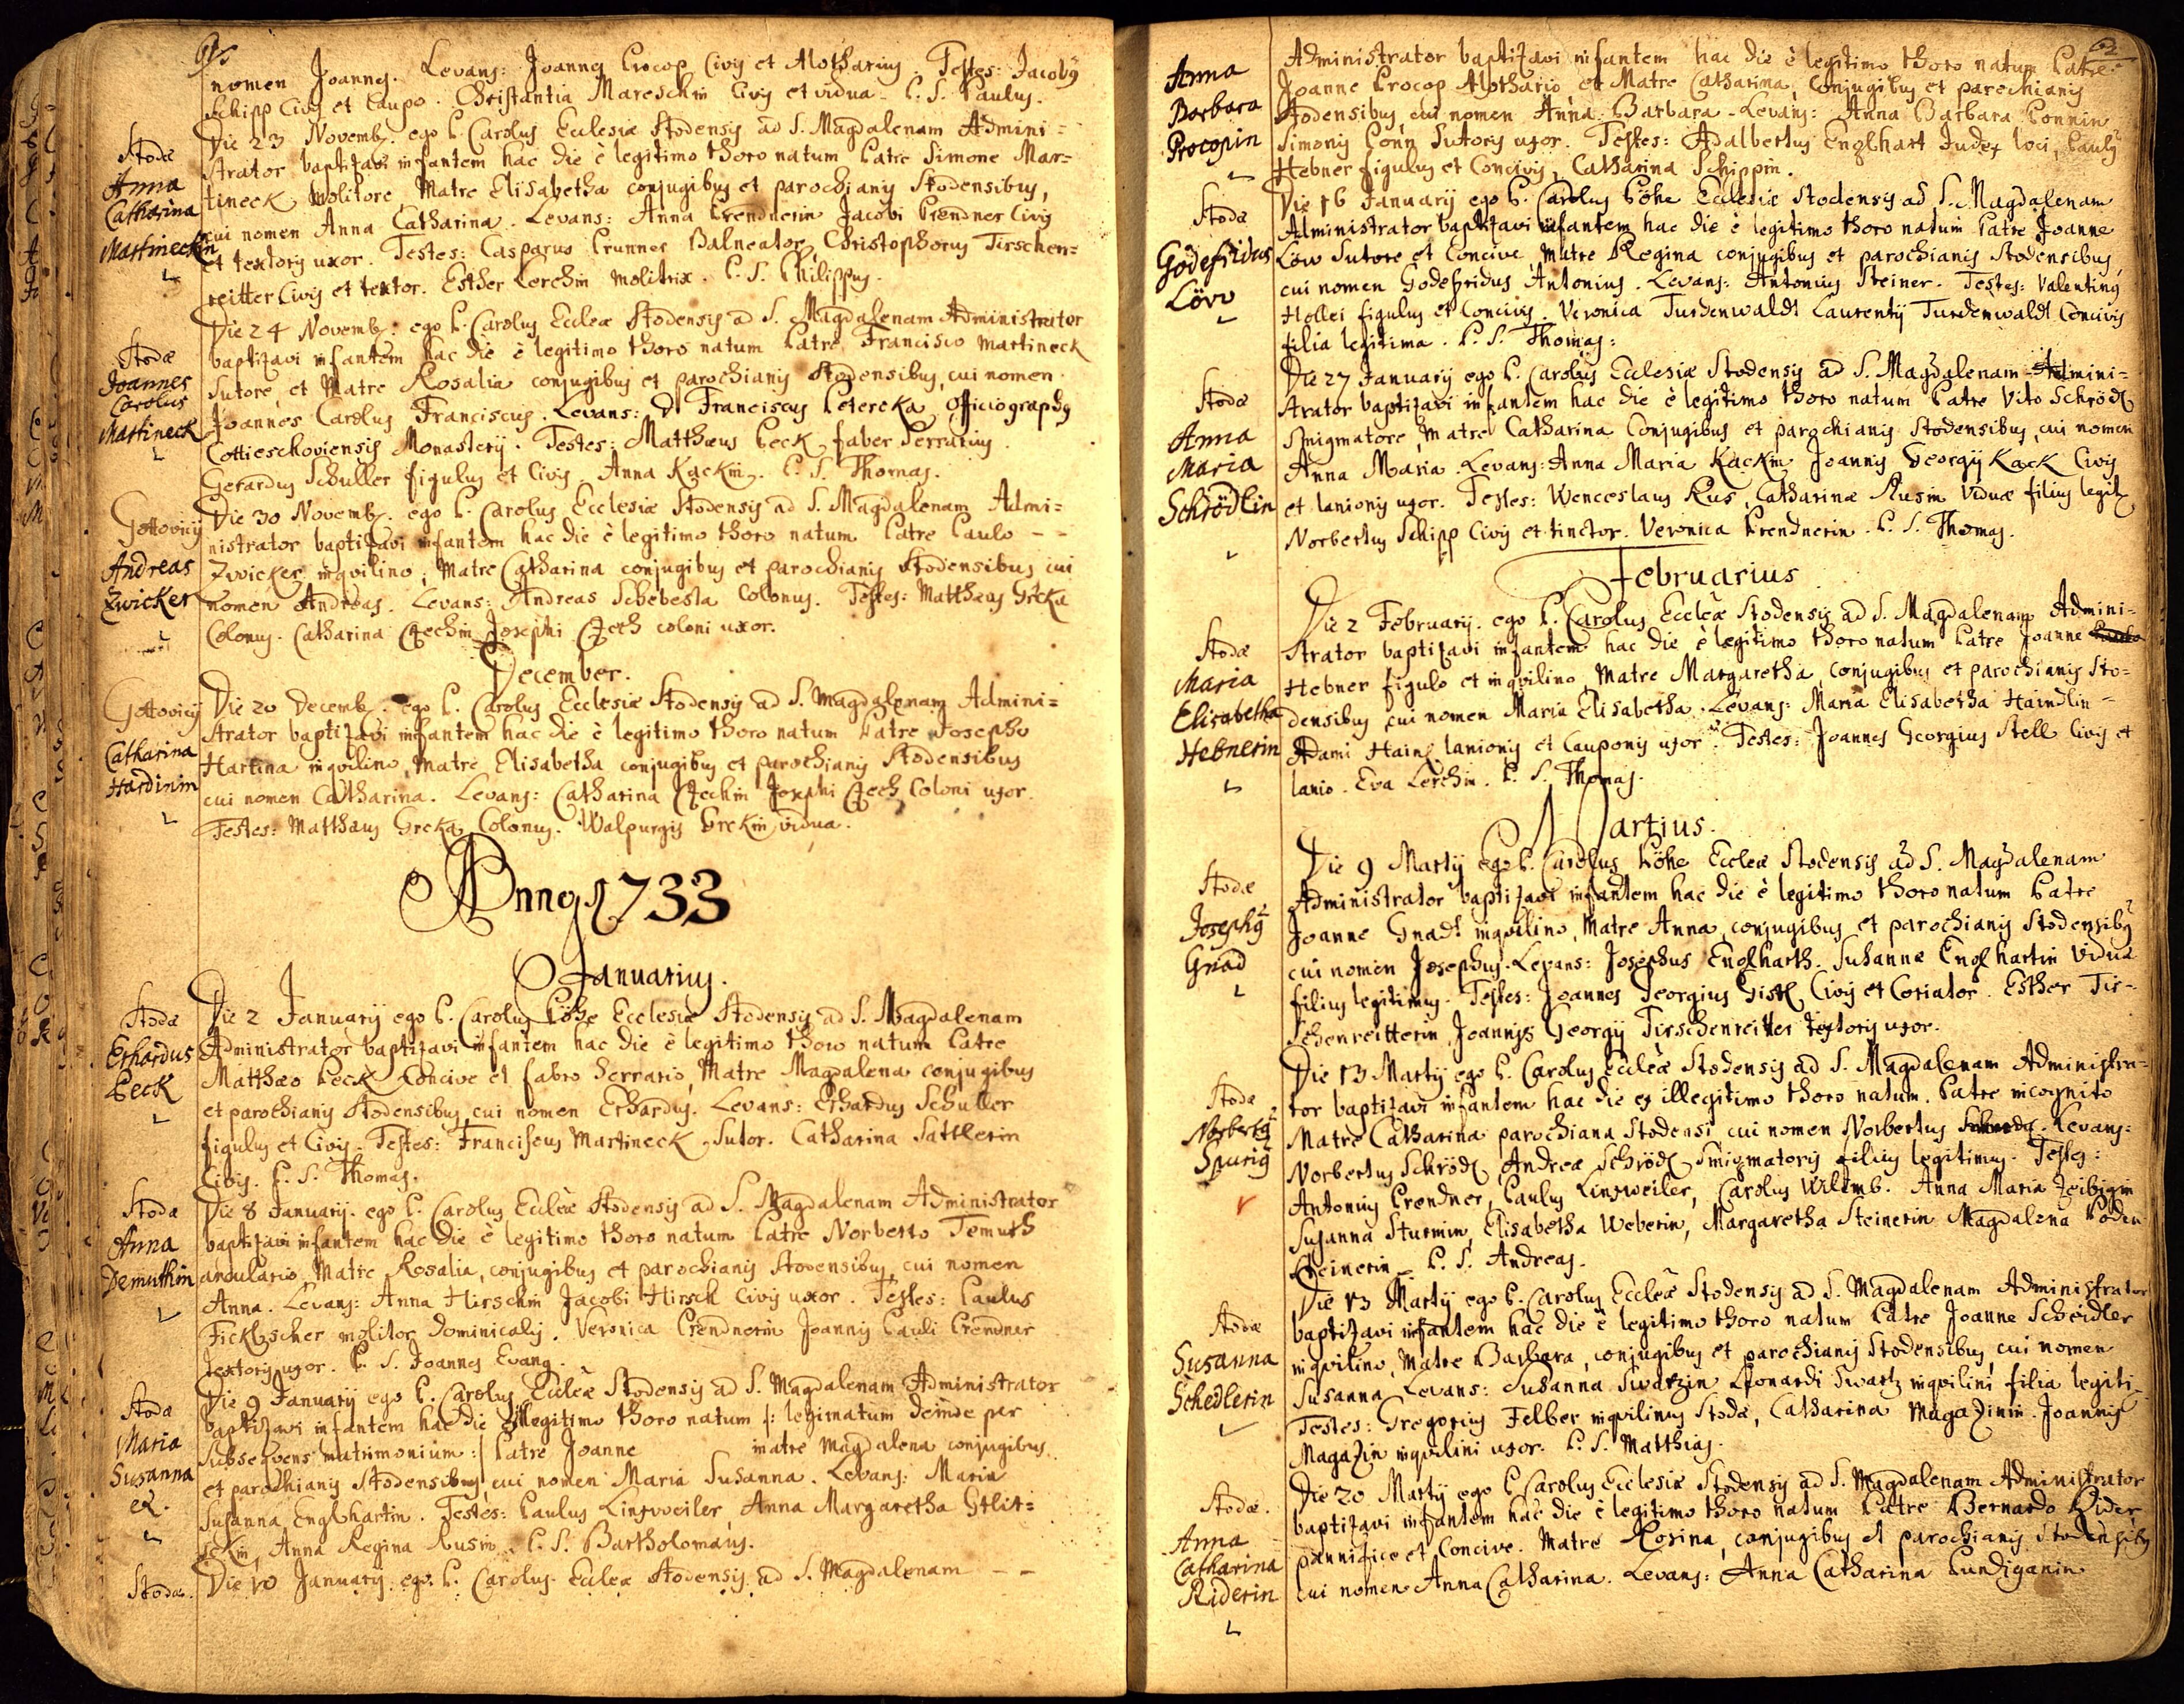 nomen Joannes. Levans: Joannes Procop Civis et Alutharius. Testes: Jacobus
Schipp Civis et Caupo. Christantia Mareschin Civis et vidua. P. S. Paulus.
Stodæ
Anna
Catharina
Martineckin
Die 23 Novemb: ego P. Carolus Ecclesiæ Stodensis ad S. Magdalenam Admini=
strator baptizavi infantem hac die è legitimo thoro natum Patre Simone Mar=
tineck Molitore, Matre Elisabetha conjugibus et parochianis Stodensibus,
cui nomen Anna Catharina. Levans: Anna Prendnerin Jacobi Prendner Civis
et textoris uxor. Testes: Casparus Prunner Balneator, Christophorus Tirschen=
reitter Civis et textor. Esther Lerchin Molitrix. P. S. Philippus.
Stodæ
Joannes
Carolus
Martineck
Die 24 Novemb: ego P. Carolus Eccleæ Stodensis ad S. Magdalenam Administrator
baptizavi infantem hac die è legitimo thoro natum Patre Francisco Martineck
Sutore, et Matre Rosalia conjugibus et parochianis Stodensibus, cui nomen
Joannes Carolus Franciscus. Levans: D. Franciscus Petercka Officiographus
Cottieschoviensis Monasterij. Testes: Matthæus Peck faber ferrarius.
Gerardus Schuller figulus et Civis, Anna Kackin. P. S. Thomas.
Gottovicij
Andreas
Zwicker
Die 30 Novemb: ego P. Carolus Ecclesiæ Stodensis ad S. Magdalenam Admi=
nistrator baptizavi infantem hac die è legitimo thoro natum Patre Paulo - -
Zwicker inqvilino, Matre Catharina conjugibus et parochianis Stodensibus cui
nomen Andreas. Levans: Andreas Schebesta Colonus. Testes: Matthæus Grcka
Colonus. Catharina Czechin Josephi Czech coloni uxor.
December.
Gottovicij
Catharina
Hardinin
Die 20 Decemb: ego P. Carolus Ecclesiæ Stodensis ad S. Magdalenam Admini=
strator baptizavi infantem hac die è legitimo thoro natum Patre Josepho
Hartina inqvilino, Matre Elisabetha conjugibus et parochianis Stodensibus
cui nomen Catharina. Levans: Catharina Czechin Josephi Czech Coloni uxor.
Testes: Matthæus Grcka Colonus. Walpurgis Grekin vidua.
Anno 1733
Januarius.
Stodæ
Erhardus
Peck
Die 2 Januarij ego P. Carolus Pöhe Ecclesiæ Stodensis ad S. Magdalenam
Administrator baptizavi infantem hac die è legitimo thoro natum Patre
Matthæo Peck Concive et fabro ferrario, Matre Magdalena conjugibus
et parochianis Stodensibus cui nomen Erhardus. Levans: Erhardus Schuller
figulus et Civis. Testes: Franciscus Martineck Sutor. Catharina Sattlerin
Civis. P. S. Thomas.
Stodæ
Anna
Demuthin
Die 8 Januarij ego P. Carolus Eccleæ Stodensis ad S. Magdalenam Administrator
baptizavi infantem hac die è legitimo thoro natum Patre Norberto Temuth
arculario, Matre Rosalia, conjugibus et parochianis Stodensibus, cui nomen
Anna. Levans: Anna Hirschin Jacobi Hirsch Civis uxor. Testes: Paulus
Ficklscher molitor Dominicalis. Veronica Prendnerin Joannis Pauli Prendner
textoris uxor. P. S. Joannes Evang.
Stodæ
Maria
Susanna
ex.
Die 9 Januarij ego P. Carolus Eccleæ Stodensis ad S. Magdalenam Administrator
baptizavi infantem hac die illegitimo thoro natum /: legimatum deinde per
subseqvens matrimonium :/ Patre Joanne matre Magdalena conjugibus
et parochianis Stodensibus, cui nomen Maria Susanna. Levans: Maria
Susanna Englhartin. Testes: Paulus Linsweiler, Anna Margaretha Stlit=
schin, Anna Regina Rusin. P. S. Bartholomæus.
Stodæ.
Die 10 Januarij ego P. Carolus Eccleæ Stodensis ad S. Magdalenam - -
62
Anna
Barbara
Procopin
Administrator baptizavi infantem hac die è legitimo thoro natum Patre
Joanne Procop Aluthario et Matre Catharina, Conjugibus et parochianis
Stodensibus, cui nomen Anna Barbara. Levans: Anna Barbara Ponnin
Simonis Ponn Sutoris uxor. Testes: Adalbertus Englhart Judex loci, Paulus
Hebner figulus et Concivis, Catharina Schippin.
Stodæ
Godefridus
Löw
Die 16 Januarij ego P. Carolus Pöhe Ecclesiæ Stodensis ad S. Magdalenam
Administrator baptizavi infantem hac die è legitimo thoro natum Patre Joanne
Löw Sutore et Concive, Matre Regina conjugibus et parochianis Stodensibus,
cui nomen Godefridus Antonius. Levans: Antonius Steiner. Testes: Valentinus
Hollei figulus et Concivis. Veronica Turdenwaldt Laurentij Turdenwaldt Concivis
filia legitima. P. S. Thomas:
Stodæ
Anna
Maria
Schrödlin
Die 27 Januarij ego P. Carolus Ecclesiæ Stodensis ad S. Magdalenam Admini=
strator baptizavi infantem hac die è legitimo thoro natum Patre Vito Schrödl
Smigmatore, Matre Catharina Conjugibus et parochianis Stodensibus, cui nomen
Anna Maria. Levans: Anna Maria Kackin Joannis Georgij Kack Civis
et lanionis uxor. Testes: Wenceslaus Rus, Catharinæ Rusin Viduæ filius legit.
Norbertus Schipp Civis et tinctor. Veronica Prendnerin. P. S. Thomas.
Februarius
Stodæ
Maria
Elisabetha
Hebnerin
Die 2 Februarij ego P. Carolus Eccleæ Stodensis ad S. Magdalenam Admini=
strator baptizavi infantem hac die è legitimo thoro natum Patre Joanne
Hebner figulo et inqvilino, Matre Margaretha, conjugibus et parochianis Sto=
densibus, cui nomen Maria Elisabetha. Levans: Maria Elisabetha Haindlin=
Adami Hainl lanionis et Cauponis uxor. Testes: Joannes Georgius Stell Civis et
lanio. Eva Lerchin. P. S. Thomas.
Martius.
Stodæ
Josephus
Gnad
Die 9 Martij Ego P. Carolus Pöhe Eccleæ Stodensis ad S. Magdalenam
Administrator baptizavi infantem hac die è legitimo thoro natum Patre
Joanne Gnadt inqvilino, Matre Anna, conjugibus et parochianis Stodensibus
cui nomen Josephus. Levans: Josephus Englharth. Susannæ Englhartin Viduæ
filius legitimus. Testes: Joannes Georgius Gistl Civis et Coriator. Esther Tir=
schenreitterin Joannis Georgij Tirschenreitter textoris uxor.
Stodæ
Norbertus
Spurius
Die 13 Martij ego P. Carolus Eccleæ Stodensis ad S. Magdalenam Administra=
tor baptizavi infantem hac die ex illegitimo thoro natum. Patre incognito
Matre Catharina parochiana Stodensi cui nomen Norbertus. Levans:
Norbertus Schrödl Andreæ Schrödl Smigmatoris filius legitimus. Testes:
Antonius Prendner, Paulus Linsweiler, Carolus Wilimb. Anna Maria Zeibigin
Susanna Sturmin, Elisabetha Weberin, Margaretha Steinerin Magdalena Poden
Steinerin P. S. Andreas.
Stodæ
Susanna
Schedlerin
Die 13 Martij ego P. Carolus Eccleæ Stodensis ad S. Magdalenam Administrator
baptizavi infantem hac die è legitimo thoro natum Patre Joanne Scheidler
inqvilino, Matre Barbara, conjugibus et parochianis Stodensibus, cui nomen
Susanna. Levans: Susanna Swarzin Leonardi Swartz inqvilini filia legiti
Testes: Gregorius Felber inqvilinus Stodæ, Catharina Magazinin Joannis
Magazin inqvilini uxor. P. S. Matthias.
Stodæ.
Anna
Catharina
Riderin
Die 20 Martij ego P. Carolus Ecclesiæ Stodensis ad S. Magdalenam Administrator
baptizavi infantem hac die è legitimo thoro natum Patre Bernardo Rider
pannifice et Concive. Matre Rosina, conjugibus et parochianis Stodensibus
cui nomen Anna Catharina. Levans: Anna Catharina Pundiganin